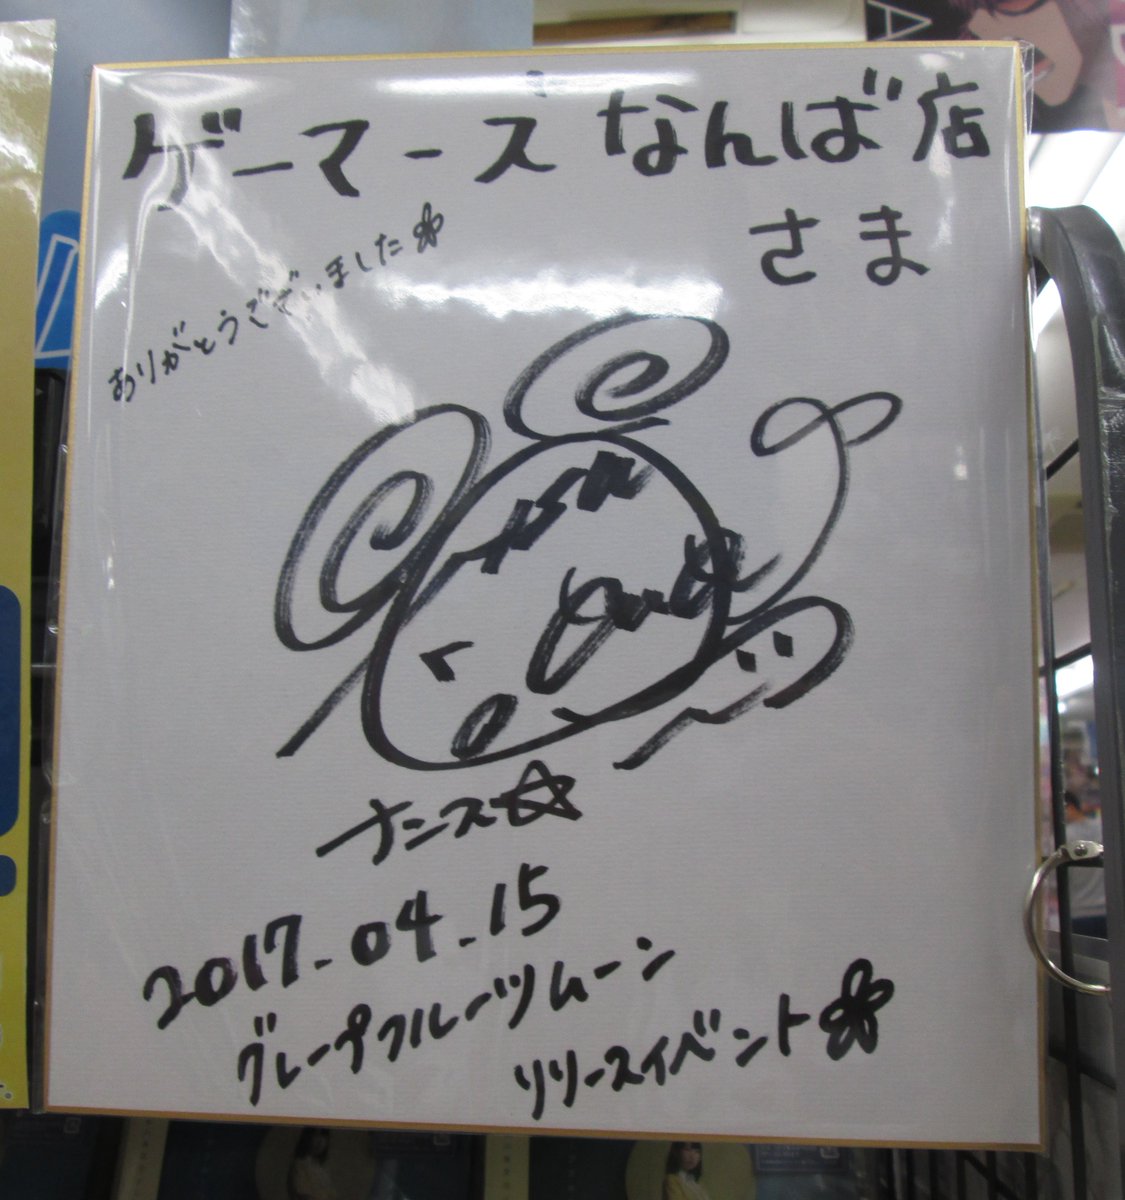 ゲーマーズ なんば店
さま
ありがとうございました
ナンス☆
2017.04.15
グレープフルーツムーン
リリースイベント